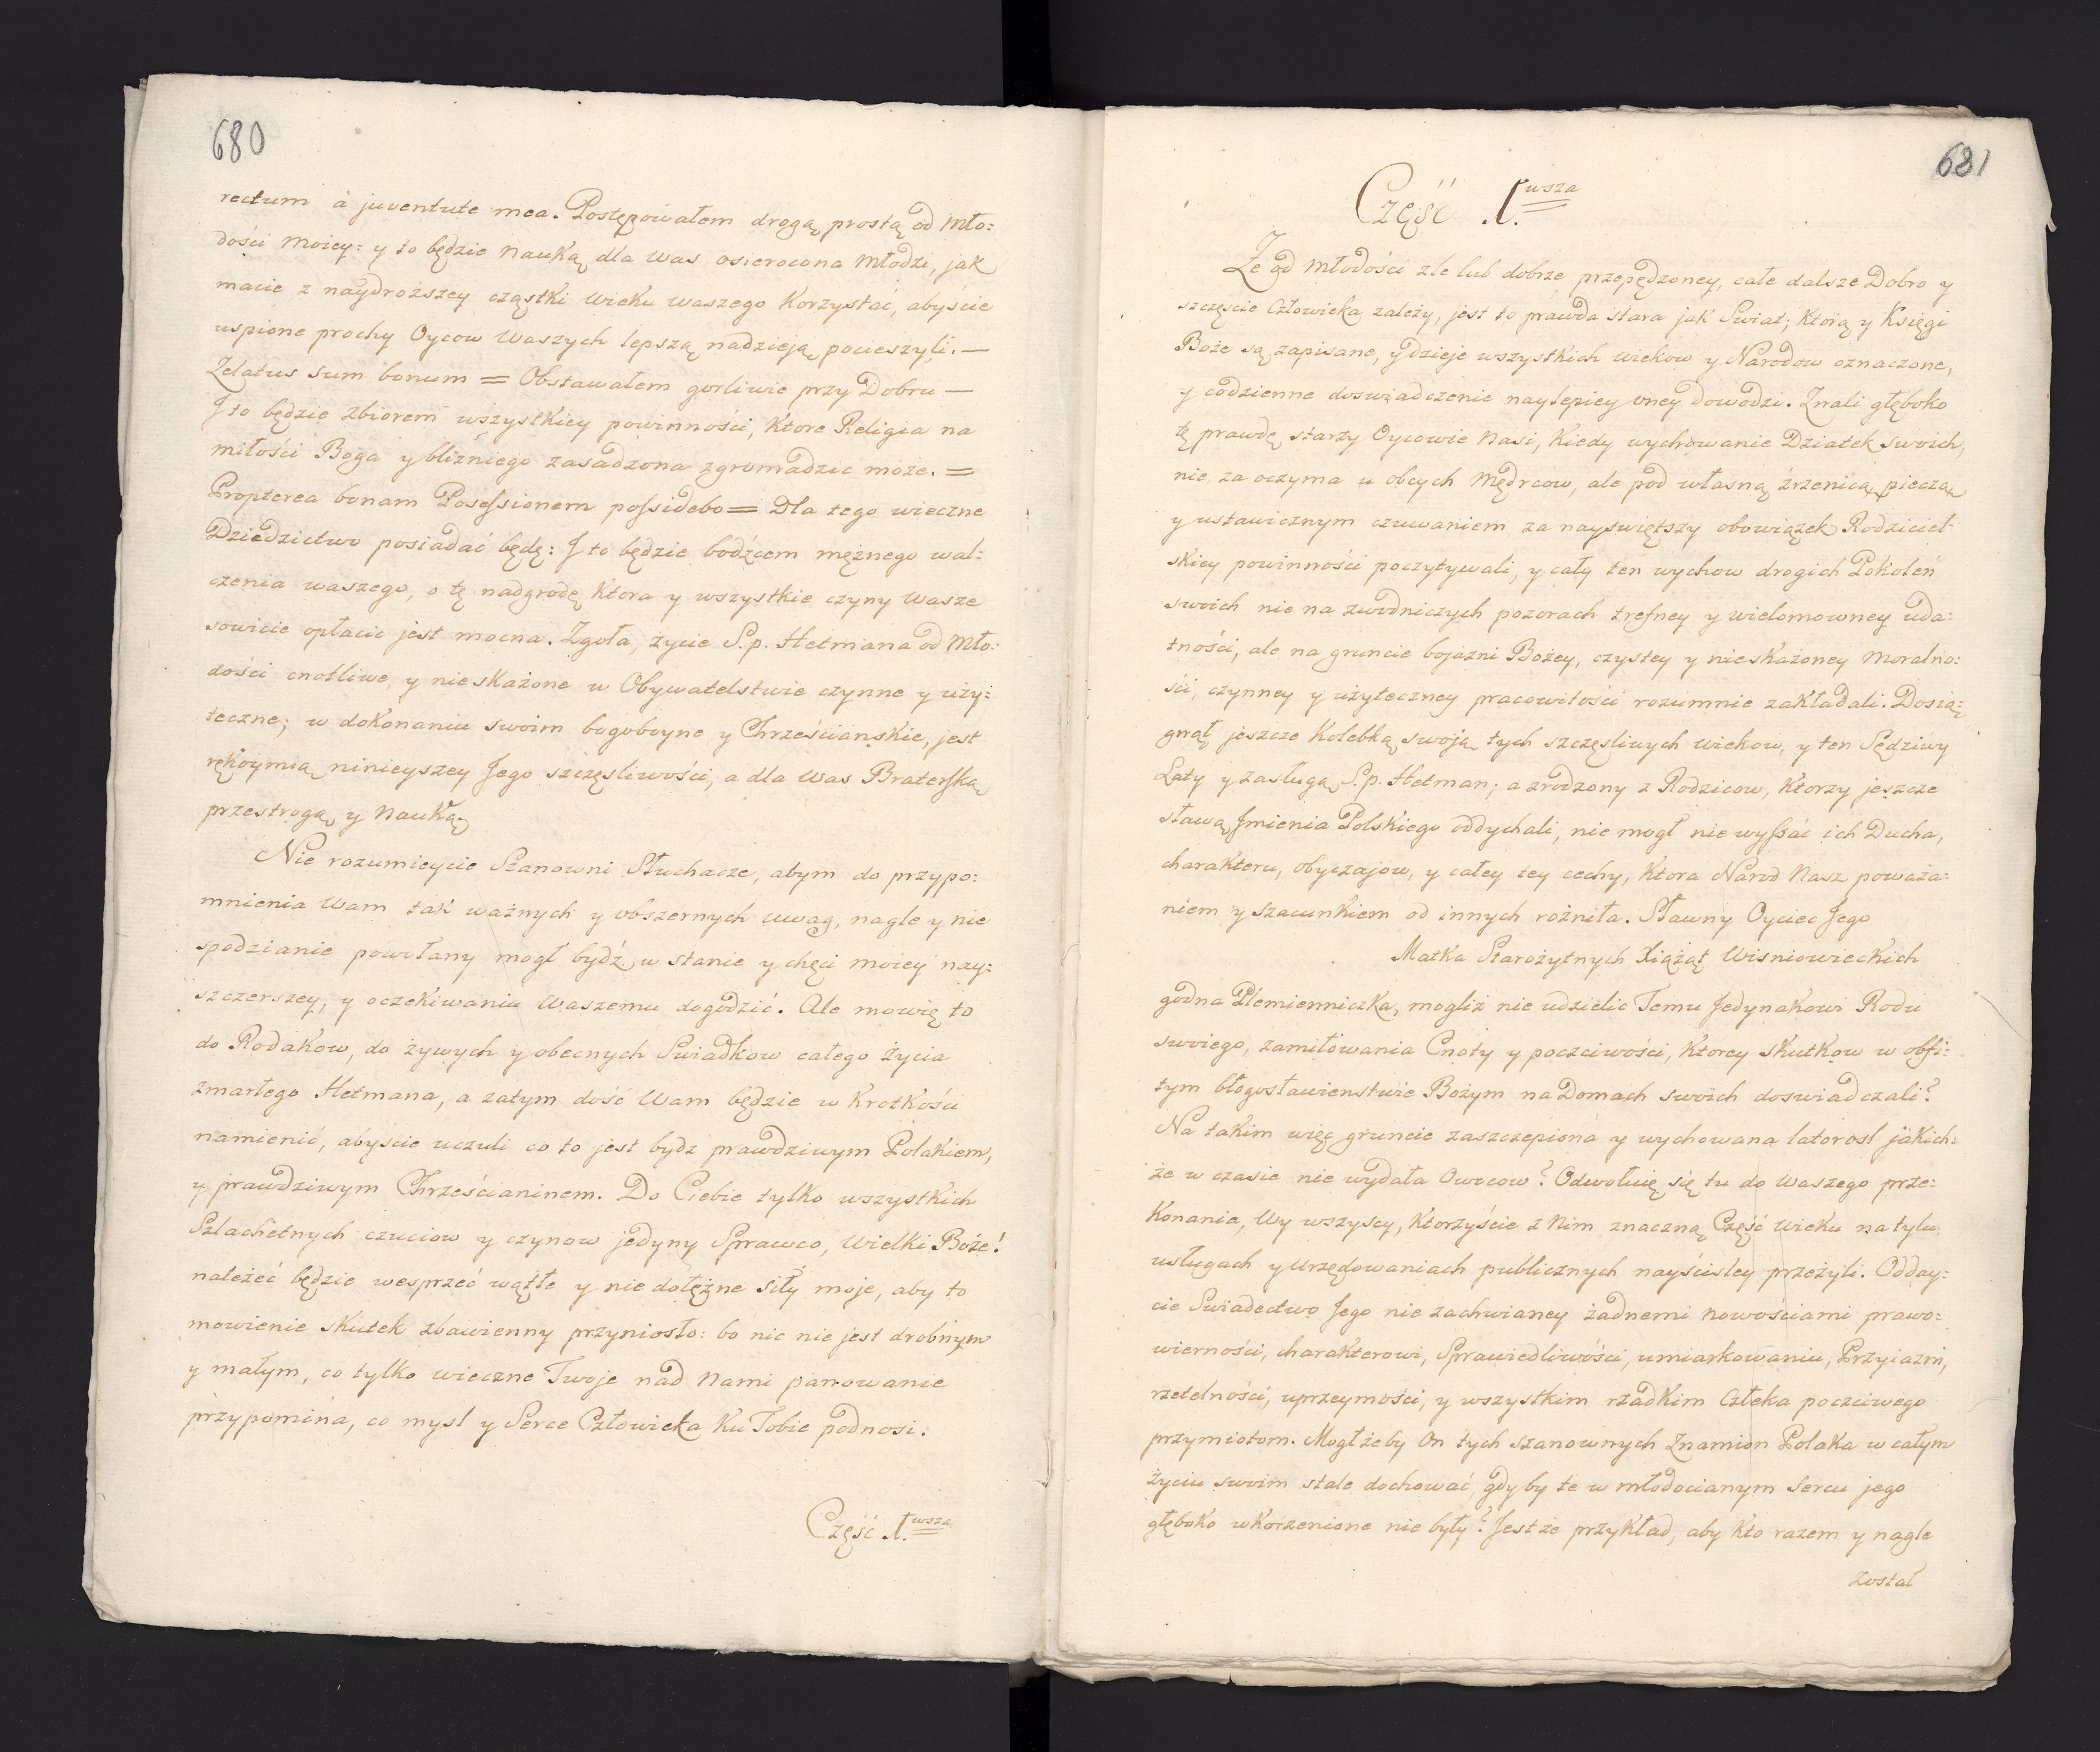 680
rectum à juventute mea. Postępowałem drogą prostą od Mło:
dości Moiey: y to będzie Nauką dla Was osierocona Młodzi, jak
macie z naydroższey cząstki Wieku waszego Korzystać, abyście
uspione prochy Oycow Waszych lepszą nadzieją pocieszyli. —
Zelatus sum bonum = Obstawałem gorliwie przy Dobru —
J to będzie zbiorem wszystkiey powinności, Ktore Religia na
miłości Boga y bliźniego zasadzona zgromadzic może. =
Propterea bonam Posessionem possidebo = Dla tego wieczne
Dziedzictwo posiadać będę: J to będzie bodźcem mężnego wal:
czenia waszego, o tę nadgrodę Ktora y wszystkie czyny Wasze
sowicie opłacic jest mocna. Zgoła, życie S.p. Hetmana od Mło:
dości cnotliwe, y nieskażone w Obywatelstwie czynne y uży:
teczne; w dokonaniu swoim bogoboyne y Chrześcianskie, jest
rękoymią ninieyszey Jego szczęsliwości, a dla Was Braterską
przestrogą y Nauką.
Nie rozumieycie Szanowni Słuchacze, abym do przypo:
mnienia Wam tak ważnych y obszernych uwag, nagle y nie
spodzianie powołany mogł bydź w stanie y chęci moiey nay:
szczerszey, y oczekiwaniu Waszemu dogodzić. Ale mowię to
do Rodakow, do żywych y obecnych Swiadkow całego Życia
zmarłego Hetmana, a zatym dość Wam będzie w Krotkości
namienić, abyście uczuli co to jest bydz prawdziwym Polakiem,
y prawdziwym Chrześcianinem. Do Ciebie tylko wszystkich
Szlachetnych czuciow y czynow jedyny Sprawco, Wielki Boże!
należeć będzie wesprzeć wątłe y nie dołężne siły moje, aby to
mowienie skutek zbawienny przyniosło: bo nic nie jest drobnym
y małym, co tylko wieczne Twoje nad Nami panowanie
przypomina, co mysl y Serce Człowieka Ku Tobie podnosi.
Część I.wsza
681
Część I.wsza
Że od Młodości zle lub dobrze przepędzoney, całe dalsze Dobro y
szczęscie Człowieka zależy, jest to prawda stara jak Swiat; Ktorą y Księgi
Boże są zapisane, y dzieje wszystkich wiekow y Narodow oznaczone,
y codzienne doswiadczenie naylepiey oney dowodzi. Znali głęboko
tę prawdę starzy Oycowie Nasi, Kiedy wychowanie Dziatek swoich,
nie za oczyma u obcych Mędrcow, ale pod własną źrzenicą, pieczą
y ustawicznym czuwaniem za nayswiętszy obowiązek Rodziciel-
skiey powinności poczytywali, y cały ten wychow drogich Pokoleń
swoich nie na zwodniczych pozorach trefney y wielomowney uda:
tności, ale na gruncie bojazni Bożey, czystey y nieskażoney Moralno:
ści, czynney y użyteczney pracowitości rozumnie zakładali. Dosią:
gnął jeszcze Kolebką swoją tych szczęsliwych wiekow, y ten Sędziwy
Laty y zasługą S.p. Hetman; a zrodzony z Rodzicow, Ktorzy jeszcze
sławą Jmienia Polskiego oddychali, nie mogł nie wyssać ich Ducha,
charakteru, obyczajow, y całey tey cechy, Ktora Narod Nasz poważa:
niem y szacunkiem od innych rożniła. Sławny Oyciec Jego
Matka Starożytnych Xiążąt Wisniowieckich
godna Plemienniczka, mogliż nie udzielic Temu Jedynakowi Rodu
swoiego, zamiłowania Cnoty y poczciwości, Ktorey skutkow w obfi:
tym błogosławienstwie Bożym na Domach swoich doswiadczali?
Na takim więc gruncie zaszczepiona y wychowana latorosl jakich:
że w czasie nie wydała Owocow? Odwołuię się tu do Waszego prze:
konania, Wy wszyscy, Ktorzyście z Nim znaczną Część Wieku na tylu
usługach y Urzędowaniach publicznych nayścisley przeżyli. Odday:
cie Swiadectwo Jego nie zachwianey żadnemi Nowościami prawo:
wierności, charakterowi, Sprawiedliwości, umiarkowaniu, Przyiazni,
rzetelności, uprzeymości, y wszystkim rzadkim Człeka poczciwego
przymiotom. Mogłżeby On tych szanownych Znamion Polaka w całym
życiu swoim stale dochować, gdyby te w młodocianym Sercu jego
głęboko wkorzenione nie były? Jestże przykład, aby Kto razem y nagle
został